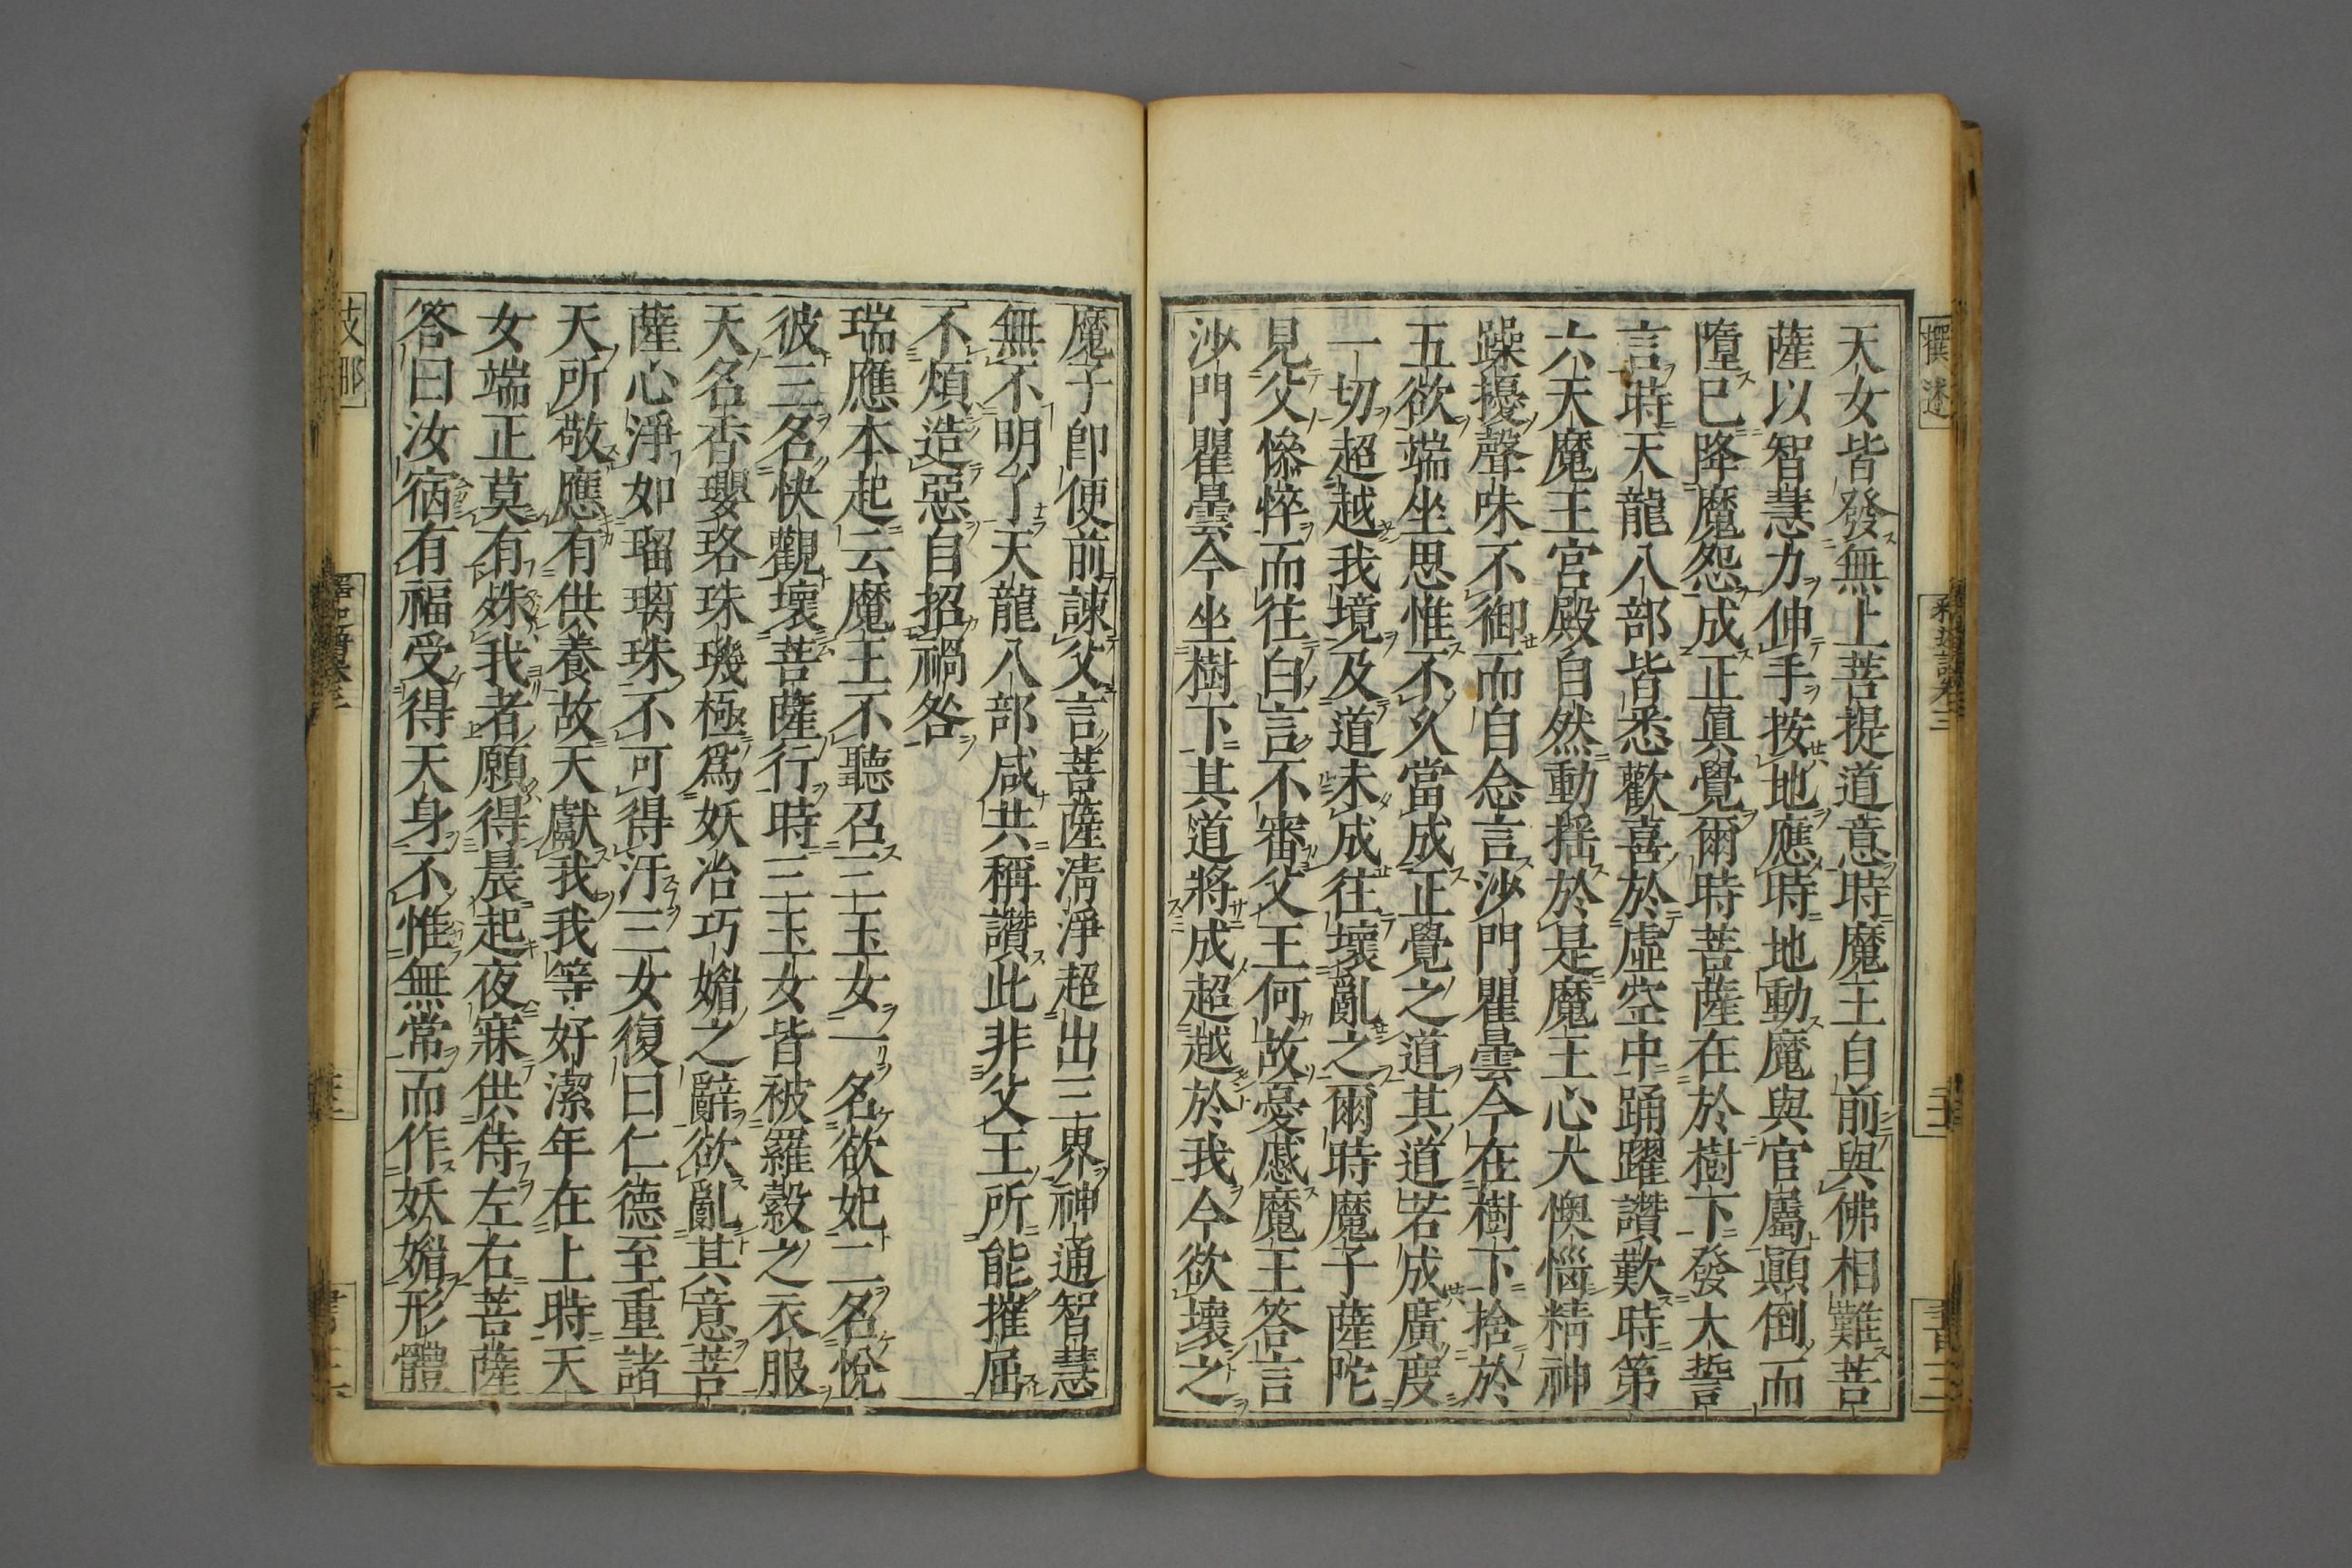 天女皆發無上菩提道意時魔王自前與佛相難菩
薩以智慧力伸手按地應時地動魔與官屬顚倒而
墮已降魔怨成正眞覺爾時菩薩在於樹下發大誓
言時天龍八部皆悉歡喜於虛空中踊躍讚歎時第
六天魔王宮殿自然動搖於是魔王心大懊惱精神
躁擾聲味不御而自念言沙門瞿曇今在樹下捨於
五欲端坐思惟不久當成正覺之道其道若成廣度
一切超越我境及道未成往壞亂之爾時魔子薩陀
見父慘悴而往白言不審父王何故憂慼魔王答言
沙門瞿曇今坐樹下其道將成超越於我今欲壞之
魔子卽便前諫父言菩薩清淨超出三界神通智慧
無不明了天龍八部咸共稱讚此非父王所能摧屈
不煩造惡自招禍咎
瑞應本起云魔王不聽召三玉女一名欲妃二名悅
彼三名快觀壞菩薩行時三玉女皆被羅縠之衣服
天名香瓔珞珠璣極爲妖冶巧媚之辭欲亂其意菩
薩心淨如瑠璃珠不可得汙三女復曰仁德至重諸
天所敬應有供養故天獻我我等好潔年在上時天
女端正莫有殊我者願得晨起夜寐供侍左右菩薩
答曰汝宿有福受得天身不惟無常而作妖媚形體